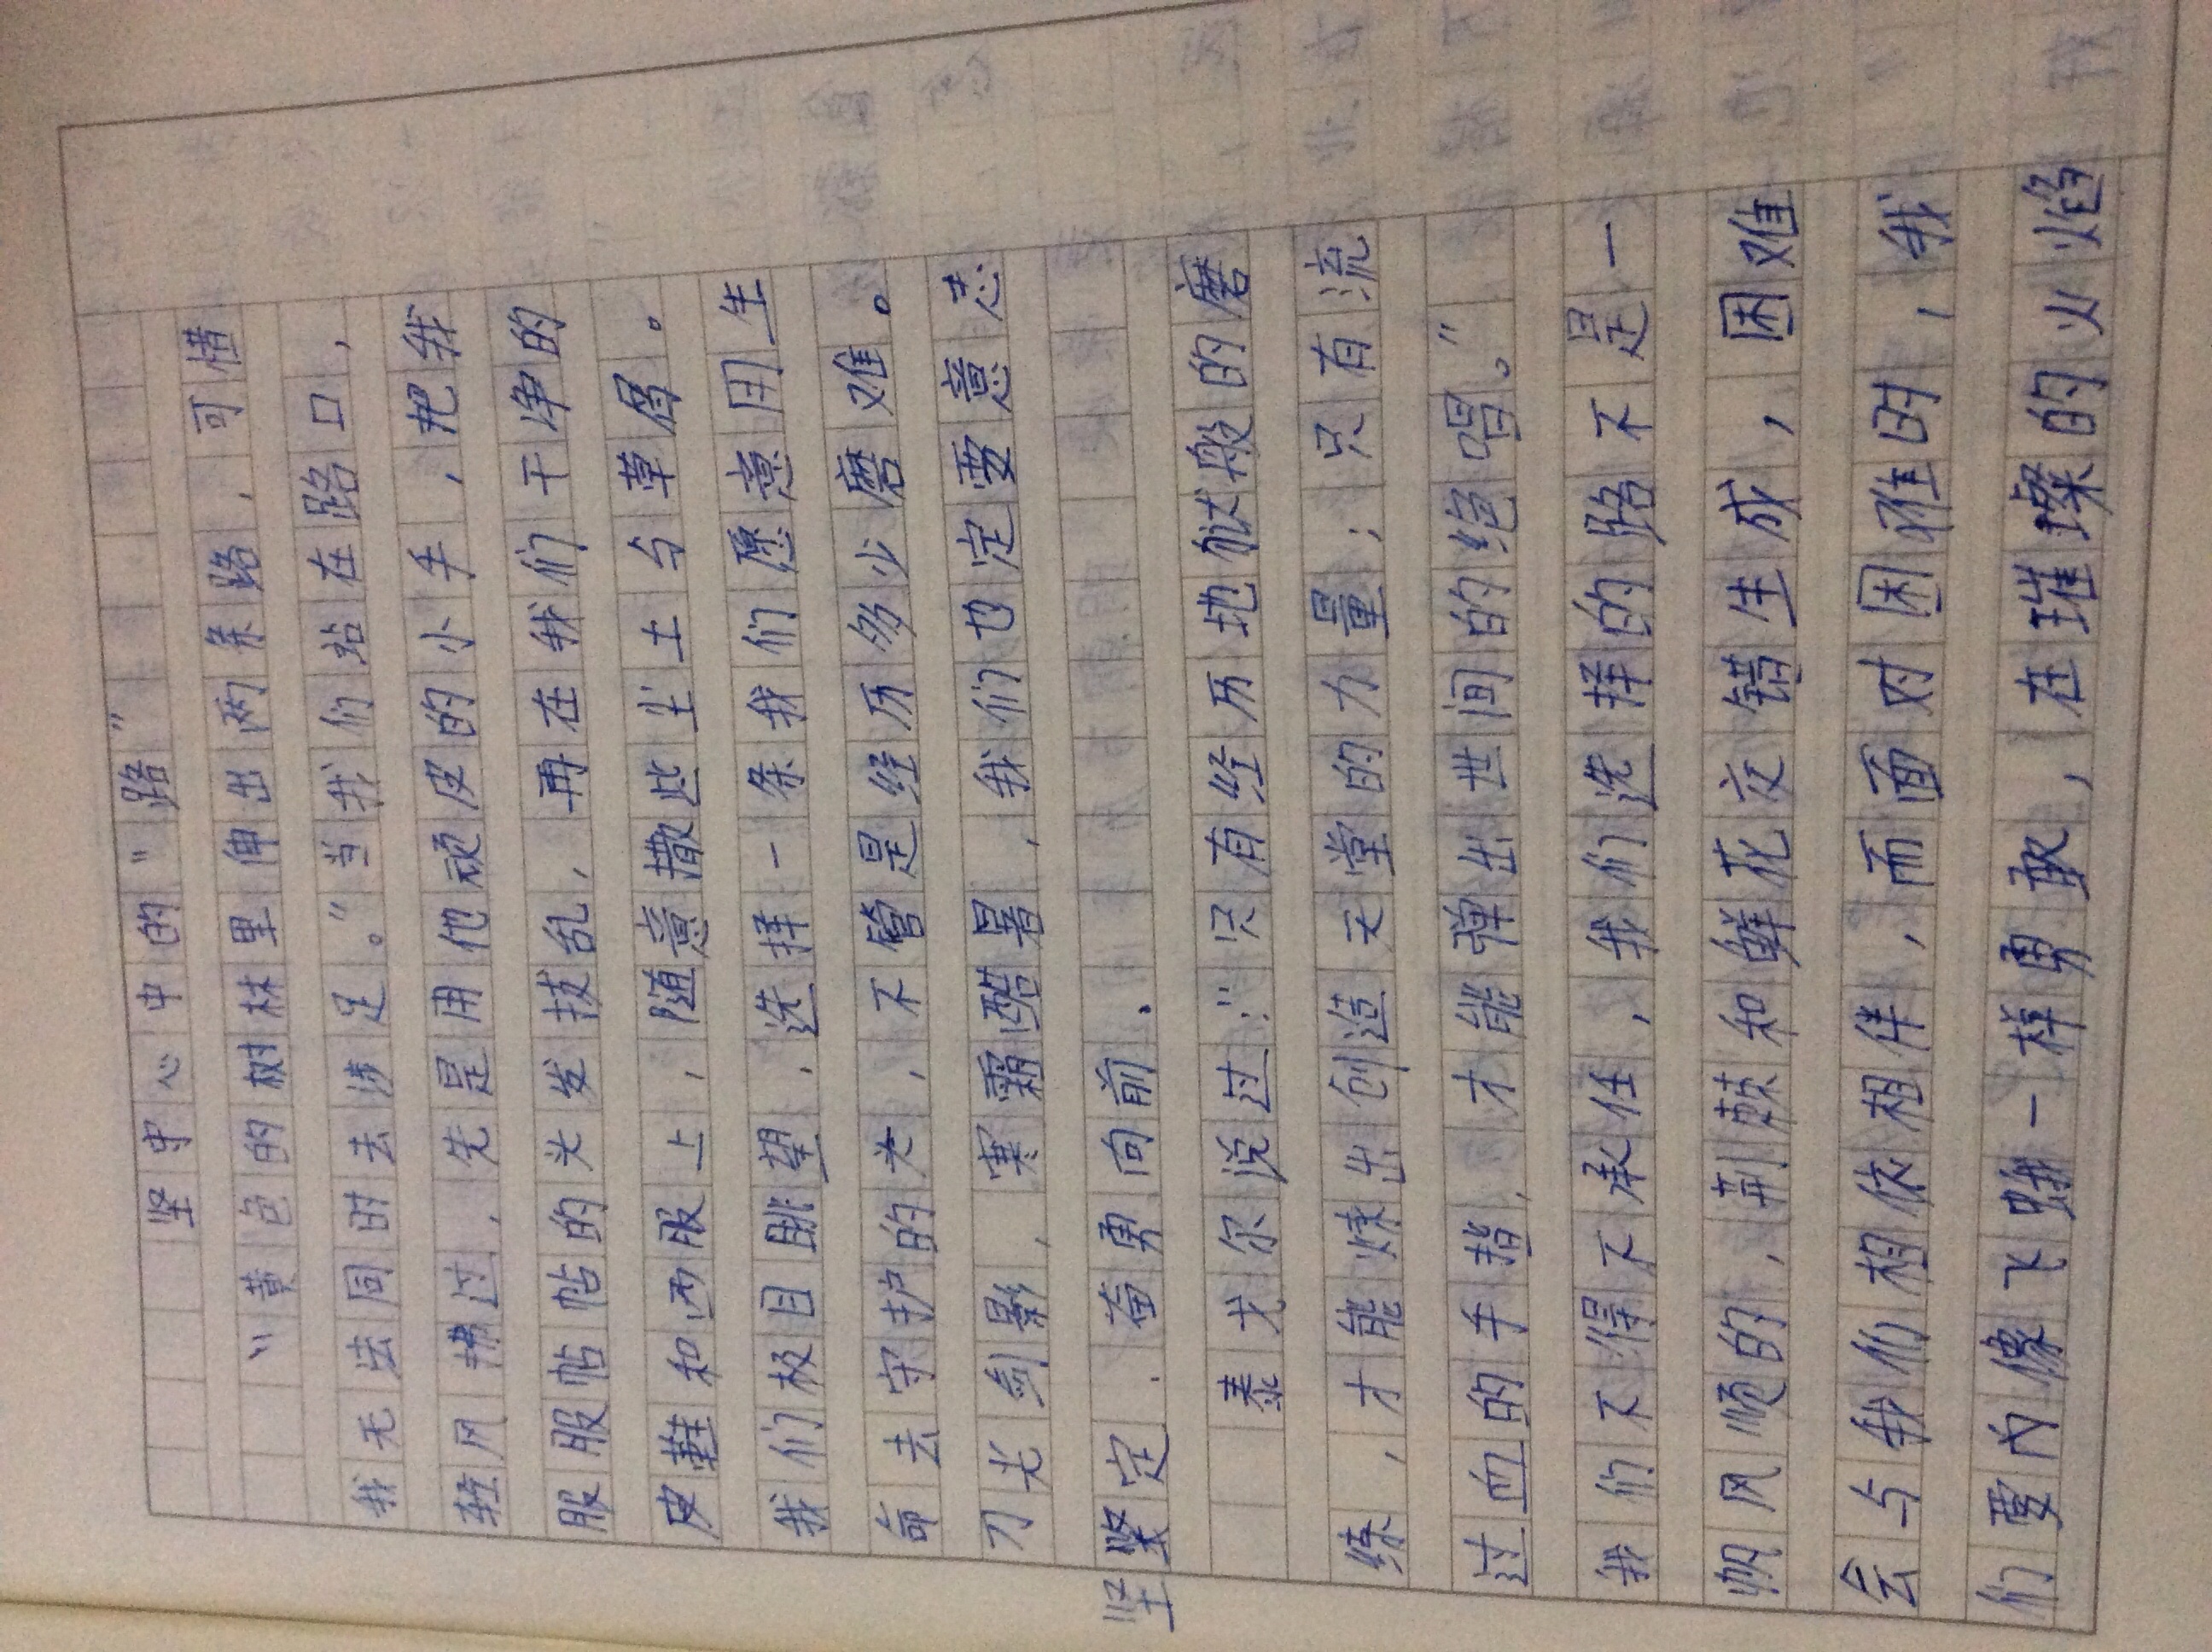 坚守心中的“路”
“黄色的树林里伸出两条路，可惜
我无法同时去涉足。”当我们站在路口，
轻风拂过，先是用他顽皮的小手，把我
服服帖帖的头发拨乱，再在我们干净的
皮鞋和西服上，随意撒些尘土与草屑。
我们极目眺望，选择一条我们愿意用生
命去守护的光，不管是经历多少磨难。
刀光剑影，寒霜酷暑，我们也定要意志
坚定，奋勇向前。
泰戈尔说过：“只有经历地狱般的磨
练，才能炼出创造天堂的力量；只有流
过血的手指，才能弹出世间的绝唱。”
我们不得不承任，我们选择的路不是一
帆风顺的，荆棘和鲜花交错生成，困难
会与我们相依相伴，而面对困难时，我
们要内像飞蛾一样勇敢，在璀璨的火焰